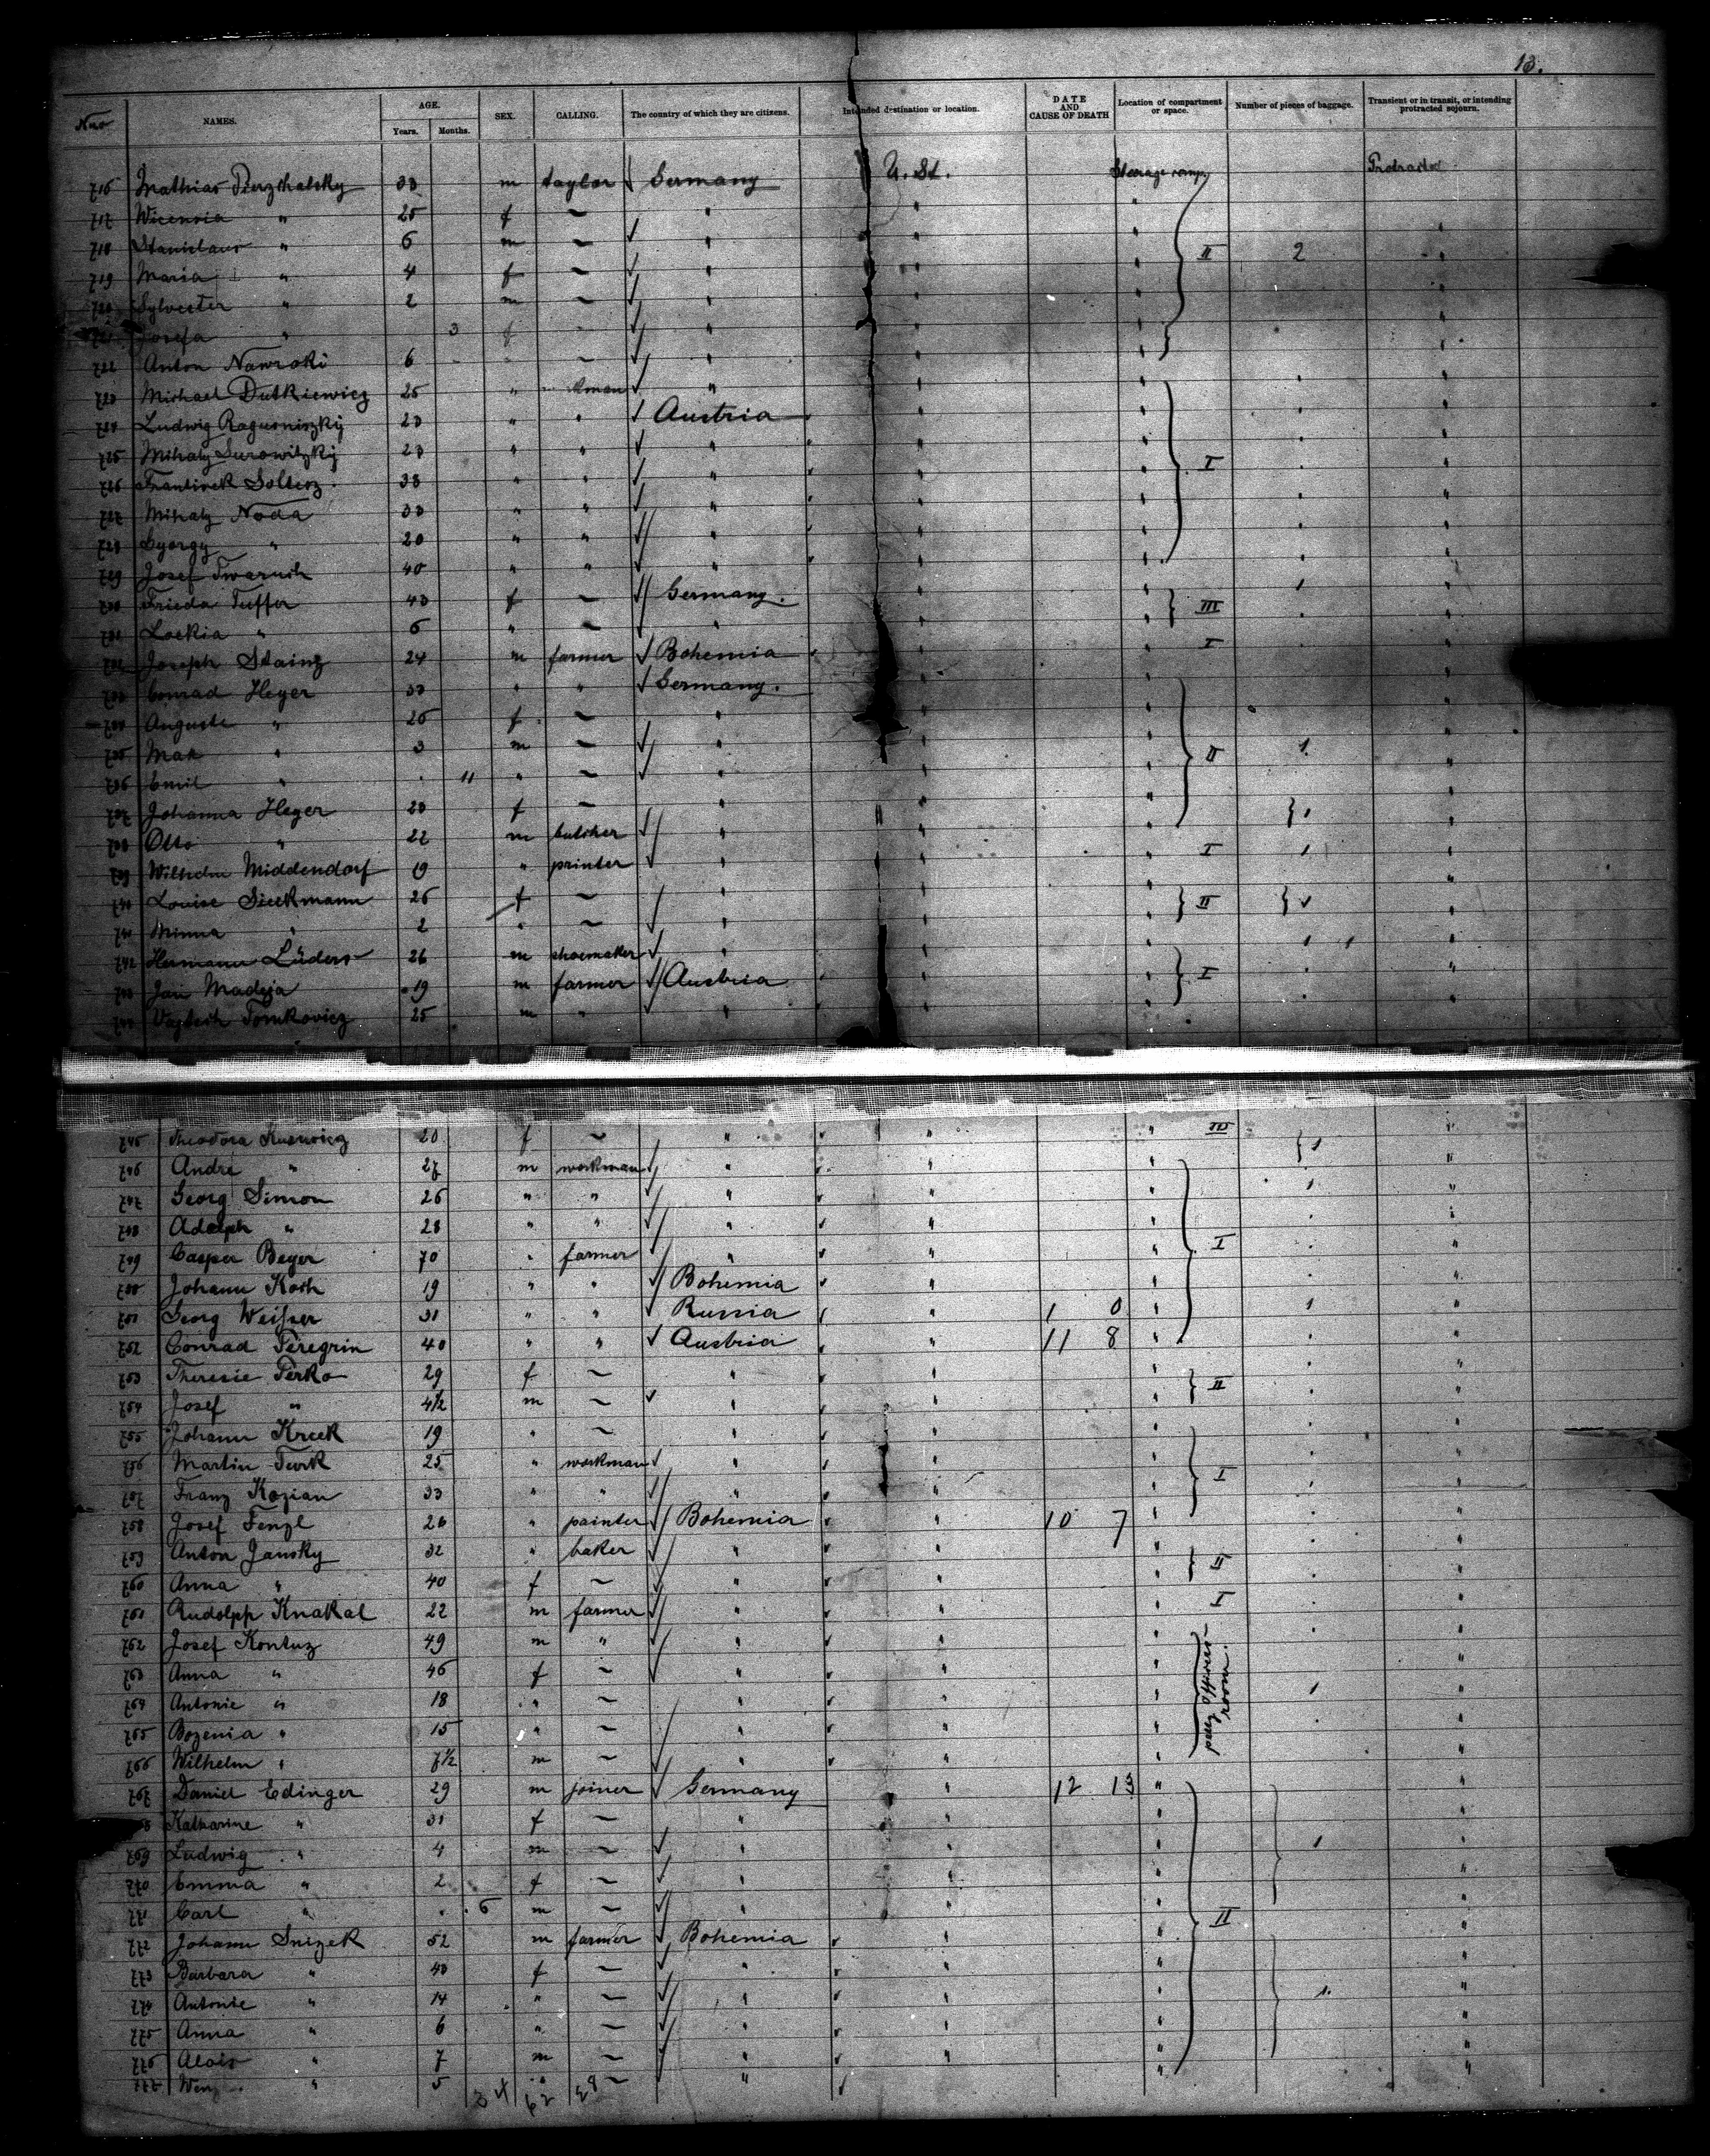 13.
Nus NAMES. AGE. Years. Months. SEX. CALLING. The country of which they are citizens. Intended destination or location. DATE AND CAUSE OF DEATH Location of compartment or space. Number of pieces of baggage. Transient or in transit, or intending protracted sojourn.
716 Mathias 33 m taylor Germany U. St. Steerage Protracted
717 " 25 f — " " "
718 Stanislaus " 6 m — " " " II 2 "
719 Maria " 4 f — " " " "
720 Sylvester " 2 m — " " " "
721 Josefa " 3 f — " " " "
722 Anton Nawroki 6 — " " " "
723 Michael Dutkiewicz 25 " " " " "
724 Ludwig 23 " " Austria " " "
725 Mihaly Surowitzkij 23 " " " " " I "
726 Frantisek Soltesz 33 " " " " " "
727 Mihaly Noda 33 " " " " " "
728 György " 20 " " " " " "
729 Josef 40 " " " " " "
730 Frieda Tuffer 43 f — Germany. " " III "
731 " 6 " — " " " "
732 Joseph Stainz 24 m farmer Bohemia " " I "
733 Conrad Heyer 33 " " Germany. " " "
734 Auguste " 26 f — " " " "
735 Max " 3 m — " " " II 1 "
736 Emil " 11 " — " " " "
737 Johanna Heyer 23 f — " " " "
738 Otto " 22 m butcher " " " "
739 Wilhelm Middendorf 19 " printer " " " I 1 "
740 Louise Sieckmann 26 f — " " " II "
741 Minna " 2 " — " " " "
742 Hermann Lüders 26 m shoemaker " " " "
743 Jan Madeja 19 m farmer Austria " " I "
744 Tomkovicz 25 m " " " " "
745 Theodora 20 f — " " " III "
746 André " 27 m workman " " " "
747 Georg Simon 26 " " " " " "
748 Adolph " 28 " " " " " "
749 Casper Beyer 70 " farmer " " " I "
750 Johann Koth 19 " " Bohemia " " "
751 Georg Weisser 31 " " Russia " 1 0 " 1 "
752 Conrad Peregrin 40 " " Austria " 11 8 " "
753 Theresie Perko 29 f — " " " II "
754 Josef " 4½ m — " " " "
755 Johann Krcek 19 " — " " " "
756 Martin Turk 25 " workman " " " I "
757 Franz Kozian 33 " " " " " "
758 Josef Fenzl 26 " painter Bohemia " 10 7 " "
759 Anton Jansky 32 " baker " " " II "
760 Anna " 40 f — " " " "
761 Rudolph Knakal 22 m farmer " " " I "
762 Josef Kontuz 49 m " " " " "
763 Anna " 46 f — " " " officers room. "
764 Antonie " 18 " — " " " 1 "
765 Bozenia " 15 " — " " " "
766 Wilhelm " 7½ m — " " " "
767 Daniel Edinger 29 m joiner Germany " 12 13 " "
768 Katharine " 31 f — " " " "
769 Ludwig " 4 m — " " " 1 "
770 Emma " 2 f — " " " "
771 Carl " 6 m — " " " II "
772 Johann Snizek 52 m farmer Bohemia " " "
773 Barbara " 43 f — " " " "
774 Antonie " 14 " — " " " 1 "
775 Anna " 6 " — " " " "
776 Alois " 7 m — " " " "
777 Wenz. " 5 " — " "
34 62 28